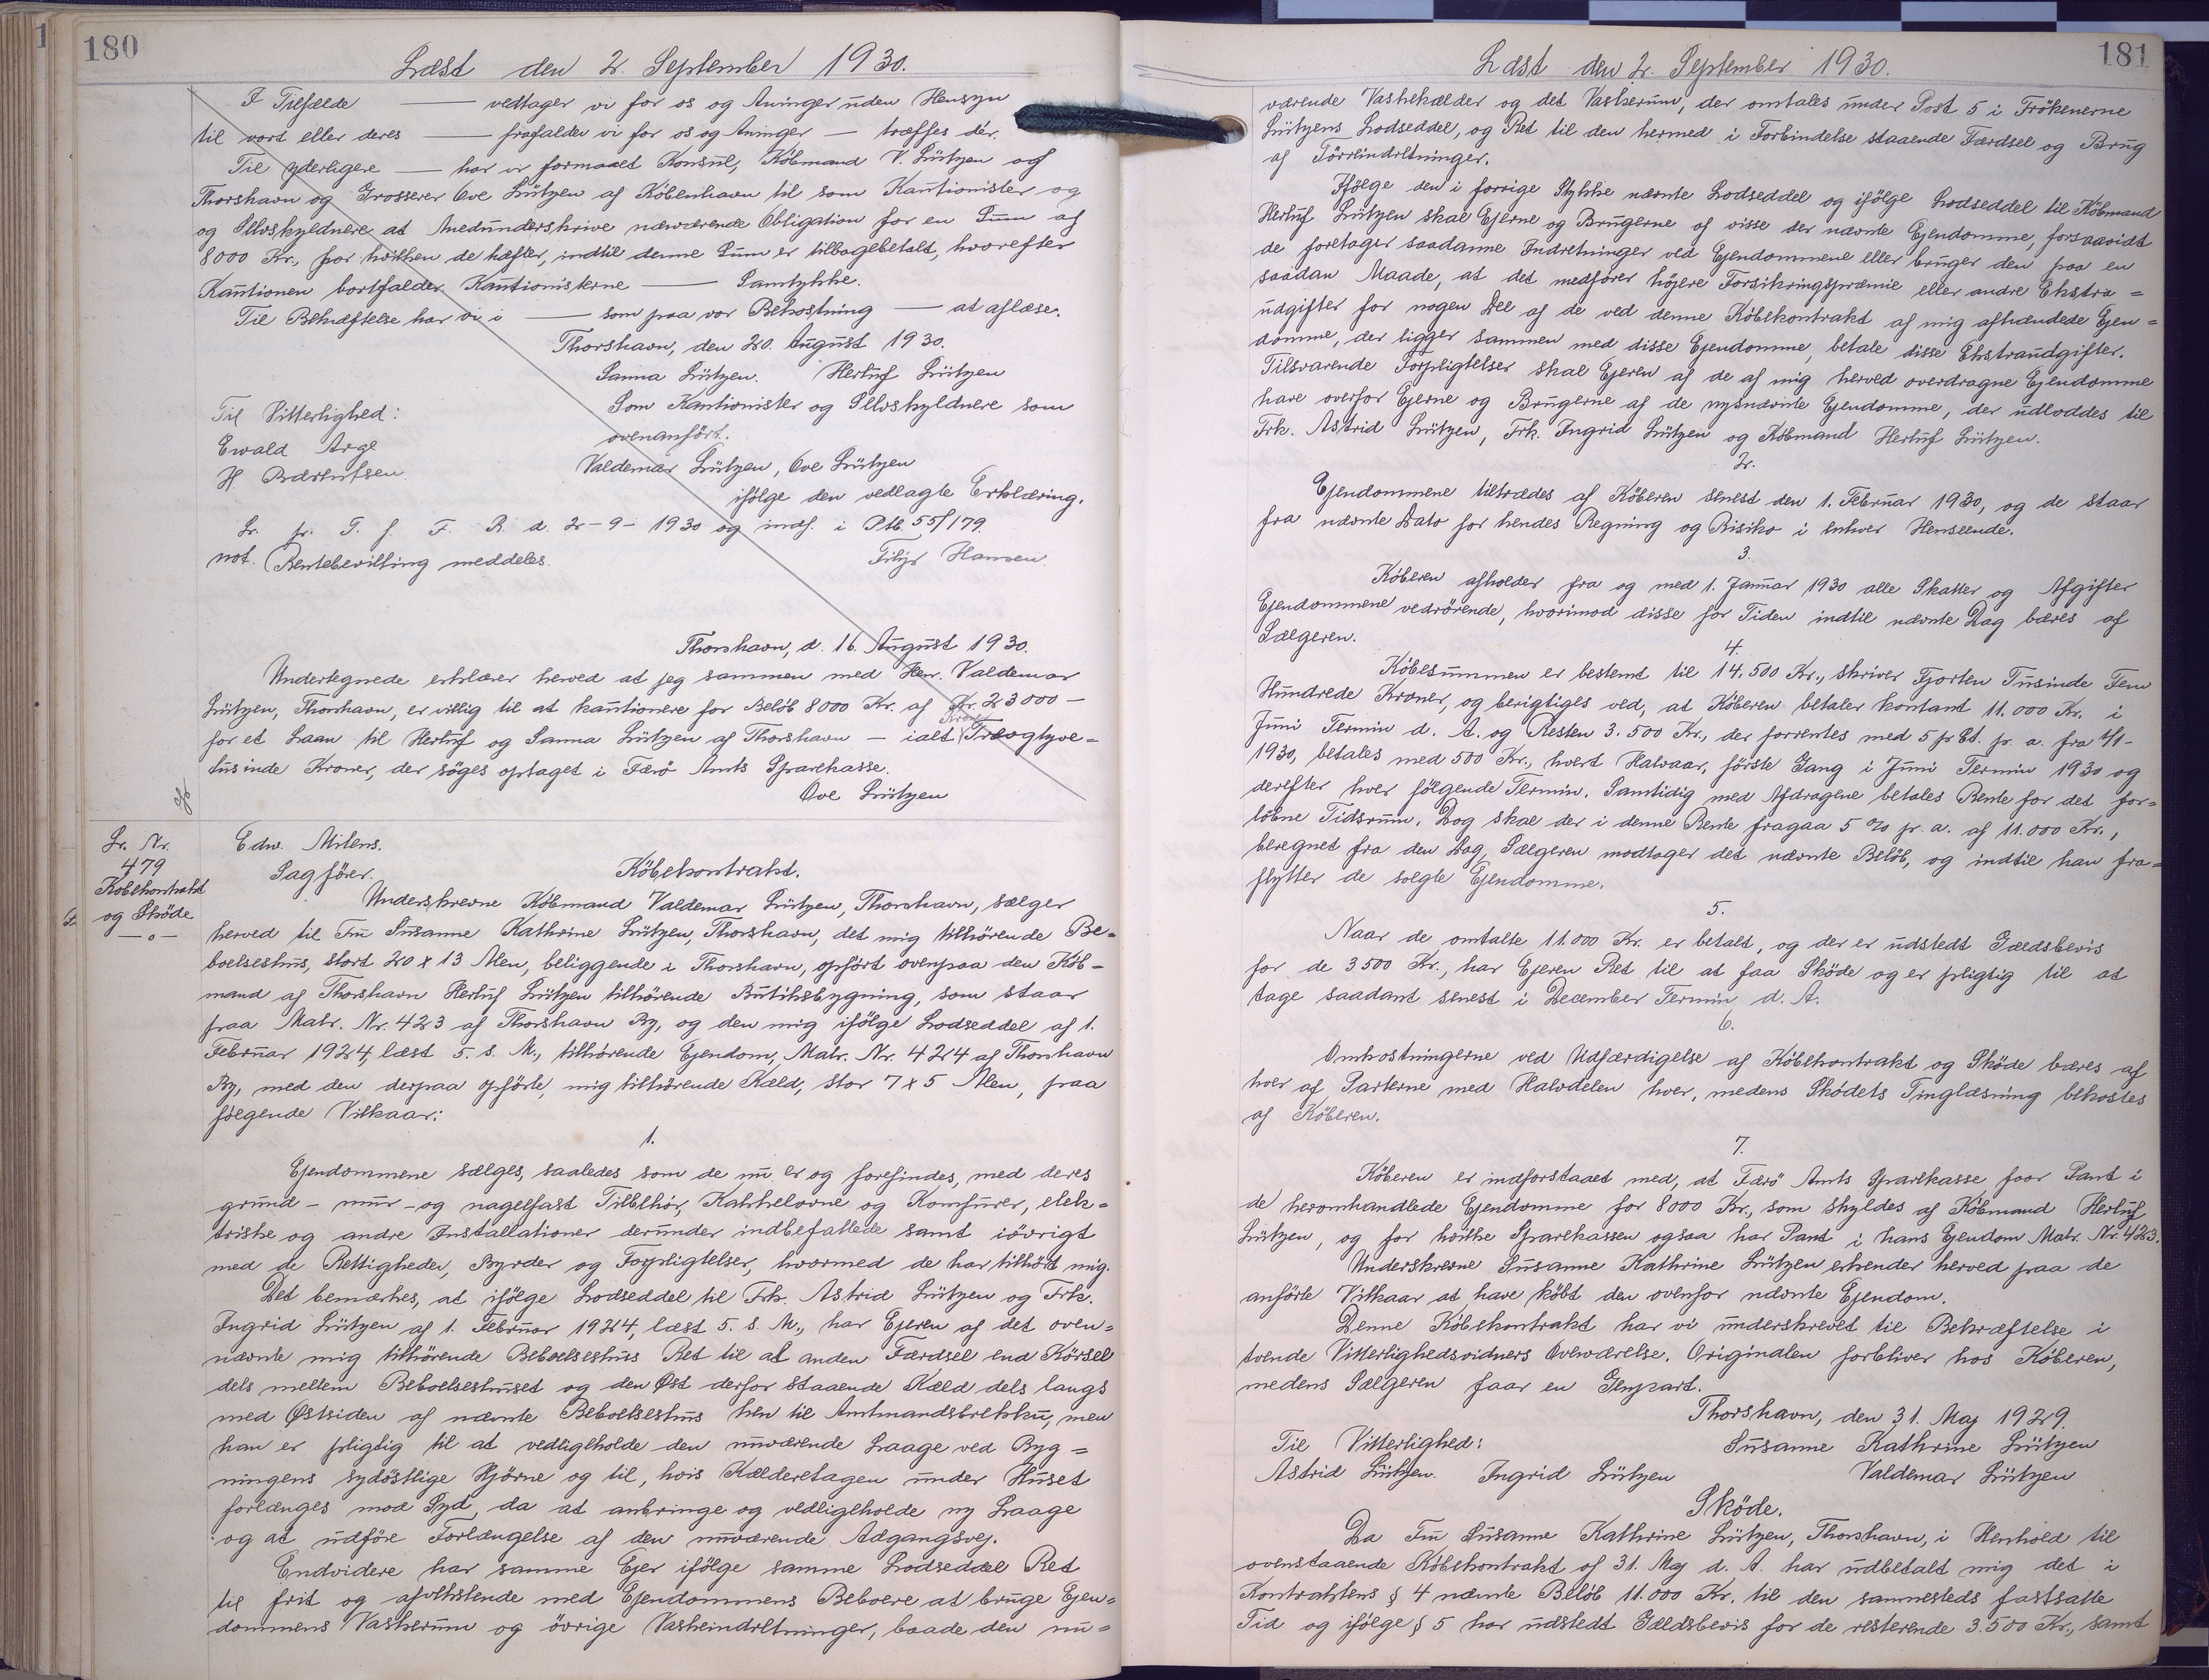 180
Læst den 2. September 1930.
I Tilfælde — vedtager vi for os og Arvinger uden Hensyn
til vort eller deres — frafalder vi for os og Arvinger — træffes dér.
Til yderligere — har vi formaaet Konsul, Købmand V. Lützen af
Thorshavn og Grosserer Ove Lützen af København til som Kautionister og
og Selvskyldnere at medunderskrive nærværende Obligation for en Sum af
8000 Kr., for hvilken de hæfter, indtil denne Sum er tilbagebetalt, hvorefter
Kautionen bortfalder. Kautionisterne — Samtykke.
Til Bekræftelse har vi i — som paa vor Bekostning — at aflæse.
Thorshavn, den 20. August 1930.
Sanna Lützen. Herluf Lützen
Som Kautionister og Selvskyldnere som
ovenanført.
Til Vitterlighed:
Ewald Arge
H Bærentsen
Valdemar Lützen, Ove Lützen
ifölge den vedlagte Erklæring.
Lr. pr. T. f. F. R. d. 2-9-1930 og indf. i Ptb. 55/179.
not. (Rentebevilling meddeles. Filip Hansen.
Thorshavn, d. 16. August 1930.
Undertegnede erklærer herved at jeg sammen med Herr. Valdemar
Lützen, Thorshavn, er villig til at kautionere for Beløb 8000 Kr. af Kr. 23000 —
for et Laan til Herluf og Sanna Lützen af Thorshavn — ialt Kroner Treogtyve=
tusinde Kroner, der søges optaget i Færö Amts Sparekasse.
Ove Lützen
Lr. Nr.
479
Købekontrakt
og Sköde
— o —
Edw. Mitens.
Sagfører.
Köbekontrakt.
Underskrevne Köbmand Valdemar Lützen, Thorshavn, sælger
herved til Fru Susanne Kathrine Lützen, Thorshavn, det mig tilhörende Be=
boelseshus, stort 20 x 13 Alen, beliggende i Thorshavn, opført ovenpaa den Köb-
mand af Thorshavn Herluf Lützen tilhörende Butiksbygning, som staar
paa Matr. Nr. 423 af Thorshavn By, og den mig ifölge Lodseddel af 1.
Februar 1924, læst 5. s. M., tilhörende Ejendom, Matr. Nr. 424 af Thorshavn
By, med den derpaa opförte, mig tilhørende Kæld, stor 7 x 5 Alen, paa
følgende Vilkaar:
1.
Ejendommene sælges, saaledes som de nu er og forefindes, med deres
grund- mur- og nagelfast Tilbehör, Kakkelovne og Komfurer, elek=
triske og andre Installationer derunder indbefattede samt iövrigt
med de Rettigheder, Byrder og Forpligtelser, hvormed de har tilhört mig.
Det bemærkes, at ifölge Lodseddel til Frk. Astrid Lützen og Frk.
Ingrid Lützen af 1. Februar 1924, læst 5. s. M., har Ejeren af det oven=
nævnte mig tilhörende Beboelseshus Ret til al anden Færdsel end Körsel
dels mellem Beboelseshuset og den Øst derfor staaende Kæld dels langs
med Østsiden af nævnte Beboelseshus hen til Amtmandsbrekku, men
han er pligtig til at vedligeholde den nuværende Laage ved Byg=
ningens sydöstlige Hjörne og til, hvis Kælderetagen under Huset
forlænges mod Syd, da at anbringe og vedligeholde ny Laage
og at udföre Forlængelse af den nuværende Adgangsvej.
Endvidere har samme Ejer ifölge samme Lodseddel Ret
til frit og afvekslende med Ejendommens Beboere at bruge Ejen=
dommens Vaskerum og övrige Vaskeindretninger, baade den nu=
181
Læst den 2. September 1930.
værende Vaskekælder og det Vaskerum, der omtales under Post 5 i Frökenerne
Lützens Lodseddel, og Ret til den hermed i Forbindelse staaende Færdsel og Brug
af Törreindretninger.
Ifölge den i forrige Stykke nævnte Lodseddel og ifölge Lodseddel til Köbmand
Herluf Lützen skal Ejerne og Brugerne af visse der nævnte Ejendomme, forsaavidt
de foretager saadanne Indretninger ved Ejendommene eller bruger den paa en
saadan Maade, at det medfører höjere Forsikringspræmie eller andre Ekstra=
udgifter for nogen Del af de ved denne Köbekontrakt af mig afhændede Ejen=
domme, der ligger sammen med disse Ejendomme, betale disse Ekstraudgifter.
Tilsvarende Forpligtelser skal Ejeren af de af mig herved overdragne Ejendomme
have overfor Ejerne og Brugerne af de nysnævnte Ejendomme, der udloddes til
Frk. Astrid Lützen, Frk. Ingrid Lützen og Købmand Herluf Lützen.
2.
Ejendommene tiltrædes af Köberen senest den 1. Februar 1930, og de staar
fra nævnte Dato for hendes Regning og Risiko i enhver Henseende.
3.
Köberen afholder fra og med 1. Januar 1930 alle Skatter og Afgifter
Ejendommene vedrörende, hvorimod disse for Tiden indtil nævnte Dag bæres af
Sælgeren.
4.
Köbesummen er bestemt til 14.500 Kr., skriver Fjorten Tusinde Fem
Hundrede Kroner, og berigtiges ved, at Köberen betaler kontant 11.000 Kr. i
Juni Termin d. A. og Resten 3.500 Kr., der forrentes med 5 pr Ct. pr. a. fra 1/1-
1930, betales med 500 Kr., hvert Halvaar, förste Gang i Juni Termin 1930 og
derefter hver fölgende Termin. Samtidig med Afdragene betales Rente for det for=
löbne Tidsrum. Dog skal der i denne Rente fragaa 5 % pr. a. af 11.000 Kr.,
beregnet fra den Dag, Sælgeren modtager det nævnte Beløb, og indtil han fra=
flytter de solgte Ejendomme.
5.
Naar de omtalte 11.000 Kr. er betalt, og der er udstedt Gældsbevis
for de 3500 Kr., har Ejeren Ret til at faa Sköde og er pligtig til at
tage saadant senest i December Termin d. A.
6.
Omkostningerne ved Udfærdigelse af Köbekontrakt og Sköde bæres af
hver af Parterne med Halvdelen hver, medens Skødets Tinglæsning bekostes
af Köberen.
7.
Köberen er indforstaaet med, at Færö Amts Sparekasse faar Pant i
de heromhandlede Ejendomme for 8000 Kr., som skyldes af Köbmand Herluf
Lützen, og for hvilke Sparekassen ogsaa har Pant i hans Ejendom Matr. Nr. 423.
Underskrevne Susanne Kathrine Lützen erkender herved paa de
anförte Vilkaar at have köbt den ovenfor nævnte Ejendom.
Denne Köbekontrakt har vi underskrevet til Bekræftelse i
tvende Vitterlighedsvidners Overværelse. Originalen forbliver hos Köberen,
medens Sælgeren faar en Genpart.
Thorshavn, den 31. Maj 1929.
Til Vitterlighed:
Susanne Kathrine Lützen
Astrid Lützen. Ingrid Lützen
Valdemar Lützen
Sköde.
Da Fru Susanne Kathrine Lützen, Thorshavn, i Henhold til
ovenstaaende Köbekontrakt af 31. Maj d. A. har udbetalt mig det i
Kontraktens § 4 nævnte Beløb 11.000 Kr. til den sammesteds fastsatte
Tid og ifölge § 5 har udstedt Gældsbevis for de resterende 3.500 Kr., samt